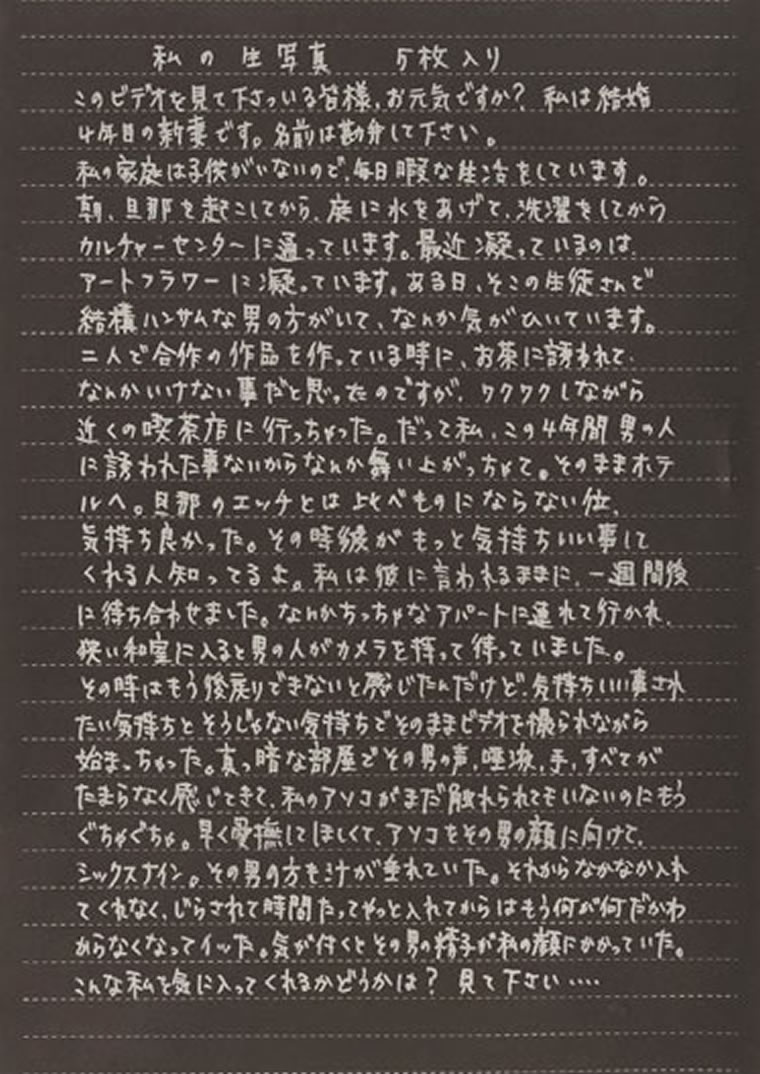 私の生写真　5枚入り
このビデオを見て下さっいる皆様,お元気ですか？ 私は結婚
4年目の新妻です。名前は勘弁して下さい。
私の家庭は子供がいないので、毎日暇な生活をしています。
朝、旦那を起こしてから、庭に水をあげて、洗濯をしてから
カルチャーセンターに通っています。最近凝っているのは、
アートフラワーに凝っています。ある日、そこの生徒さんで
結構ハンサムな男の方がいて、なんか気がひいています。
二人で合作の作品を作っている時に、お茶に誘われて、
なんかいけない事だと思ったのですが、ワクワクしながら
近くの喫茶店に行っちゃった。だって私、この4年間男の人
に誘われた事ないからなんか舞い上がっちゃて。そのままホテ
ルへ。旦那のエッチとは比べものにならない位、
気持ち良かった。その時彼がもっと気持ちいい事して
くれる人知ってるよ。私は彼に言われるままに、一週間後
に待ち合わせました。なんかちっちゃなアパートに連れて行かれ、
狭い和室に入ると男の人がカメラを持って待っていました。
その時はもう後戻りできないと感じたんだけど、気持ちいい事され
たい気持ちとそうじゃない気持ちでそのままビデオを撮られながら
始まっちゃった。真っ暗な部屋でその男の声、唾液、手、すべてが
たまらなく感じてきて、私のアソコがまだ触れられてもいないのにもう
ぐちゃぐちゃ。早く愛撫してほしくて、アソコをその男の顔に向けて、
ミックスナイン。その男の方も汁が垂れていた。それからなかなか入れ
てくれなく、じらされて時間たってやっと入れてからはもう何が何だかわ
からなくなってイッた。気が付くとその男の精子が私の顔にかかっていた。
こんな私を気に入ってくれるかどうかは？ 見て下さい‥‥